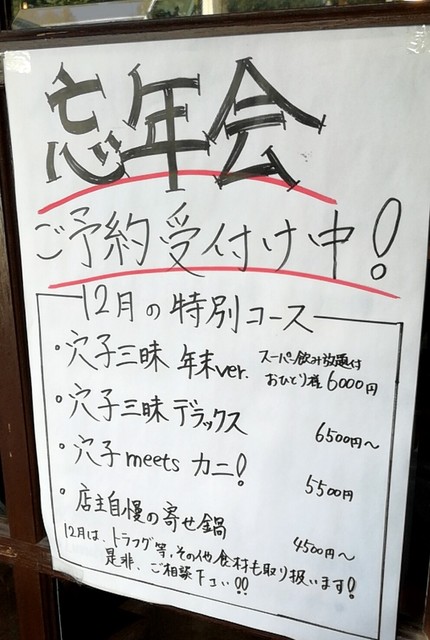 忘年会
ご予約受付け中!
12月の特別コース
・穴子三昧 年末ver. スーパー飲み放題付
おひとり様 6000円
・穴子三昧 デラックス
6500円~
・穴子 meets カニ!
5500円
・店主自慢の寄せ鍋
4500円~
12月は、トラフグ等、その他食材も取り扱います!
是非、ご相談下さい!!